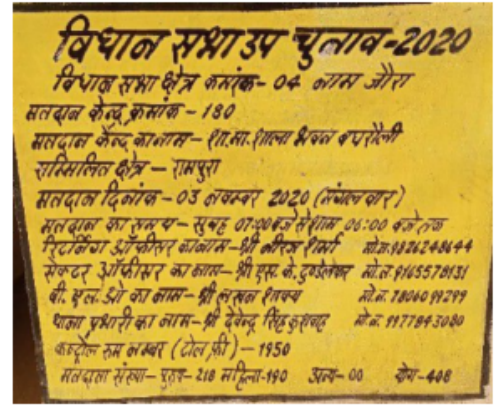 विधान सभा उप चुनाव-2020
विधान सभा क्षेत्र कमांक- 04 नाम जौरा
मतदान केन्द्र क्रमांक - 180
मतदान केन्द्र का नाम - शा.मा.शाला भवन बघरौली
सम्मिलित क्षेत्र - रामपुरा
मतदान दिनांक - 03 नवम्बर 2020 (मंगलवार)
मतदान का समय - सुबह 07:00 बजे से शाम 06:00 बजे तक
रिटर्निंग ऑफीसर का नाम - श्री नीरज शर्मा मो.न. 9826248644
सेक्टर ऑफीसर का नाम - श्री एस. के. टुण्डेलकर मो.न. 9165578931
बी. एल. ओ का नाम - श्री लखन शाक्य मो.न. 7806099299
थाना प्रभारी का नाम - श्री देवेन्द्र सिंह कुशवाह मो.न. 9977843080
कन्ट्रोल रूम नम्बर (टोल फ्री) - 1950
मतदाता संख्या - पुरुष - 218 महिला - 190 अन्य - 00 योग - 408